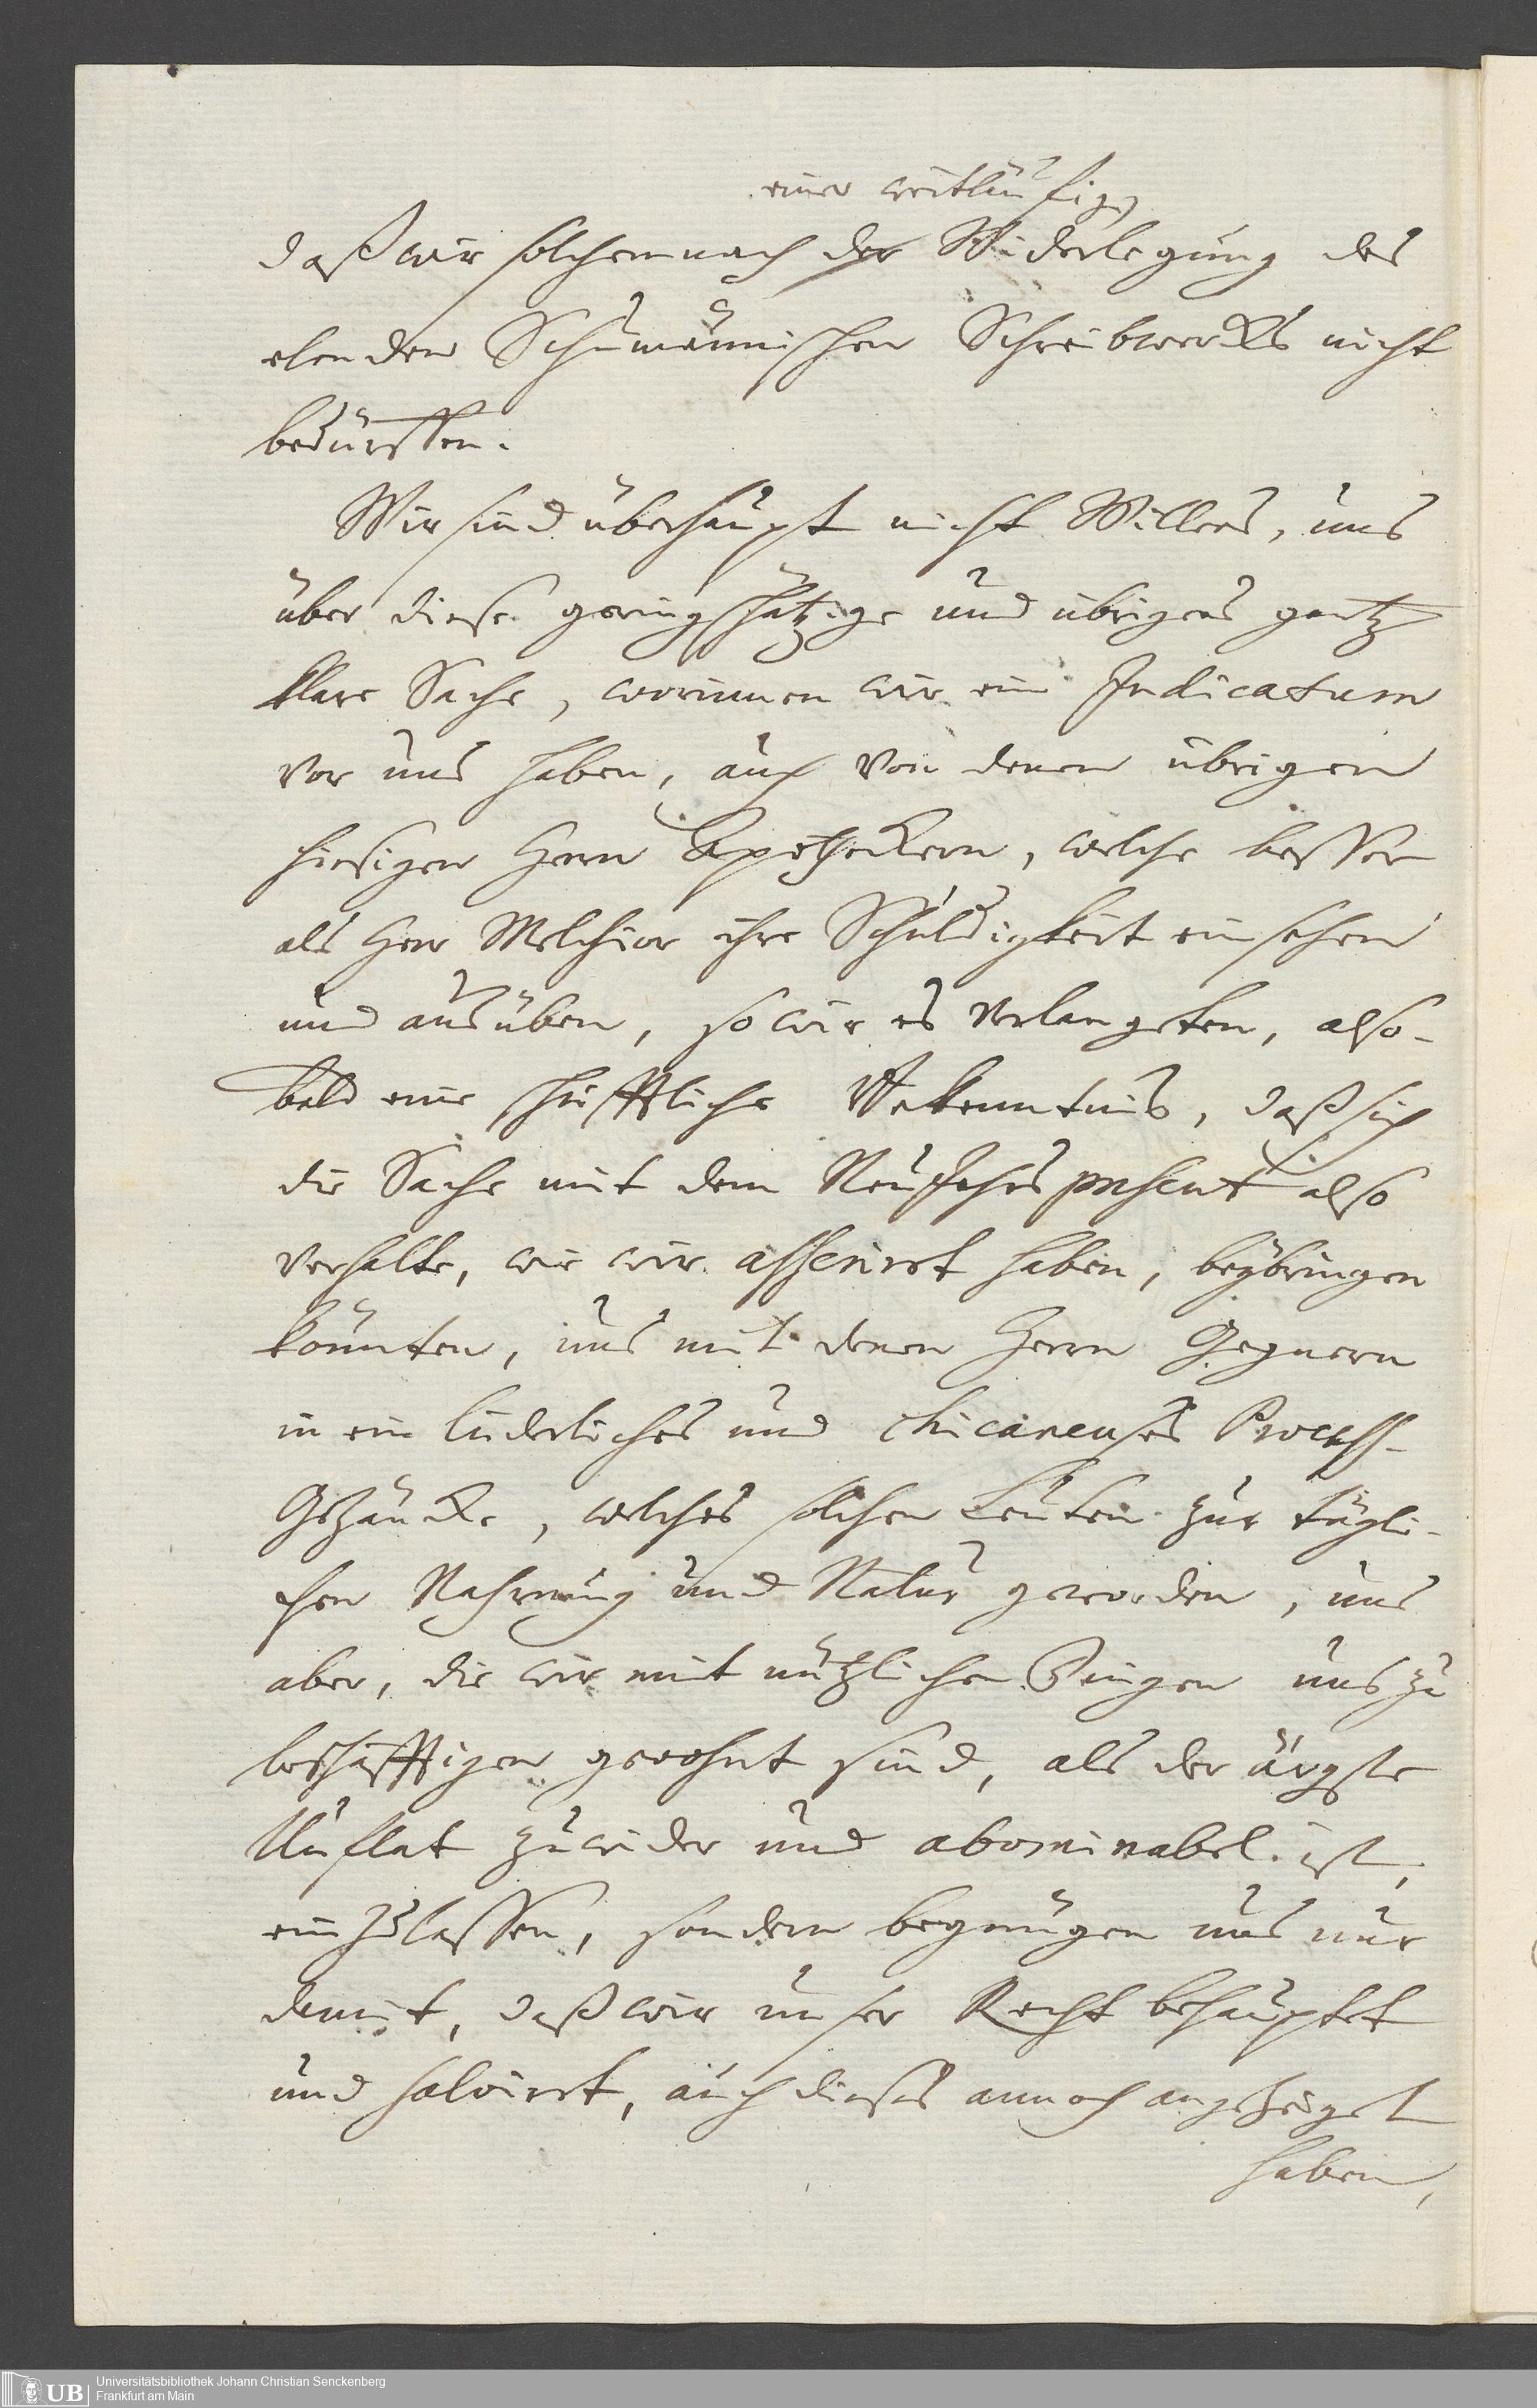 einer weitläufigen
daß wir solchemnach der Widerlegung des
elenden Schumännischen Schreibwercks nicht
bedürffen.
Wir sind überhaupt nicht Willens, uns
über diese geringschätzige und übrigens gantz
klare Sache, worinnen wir ein Judicatum
vor uns haben, auch von denen übrigen
hiesigen Herrn Apotheckern, welche besser
als Herr Melchior ihre Schuldigkeit einsehen
und ausüben, so wir es verlangeten, also-
bald eine schrifftliche Bekenntnis, daß sich
die Sache mit dem Neujahrspresent also
verhalte, wie wir asserirt haben, beybringen
könnten, uns mit denen Herrn Gegnern
in ein liederliches und chicaneuses Process-
Gezäncke, welches solchen Leuten zur tägli-
chen Nahrung und Natur geworden, uns
aber, die wir mit nützlichen Dingen uns zu
beschäfftigen gewohnt sind, als der ärgste
Unflat zuwider und abominabel ist,
einzulassen, sondern begnügen uns nur
damit, daß wir unser Recht behauptet
und salvirt, auch dieses annoch angezeiget
haben,
UB
Universitätsbibliothek Johann Christian Senckenberg
Frankfurt am Main